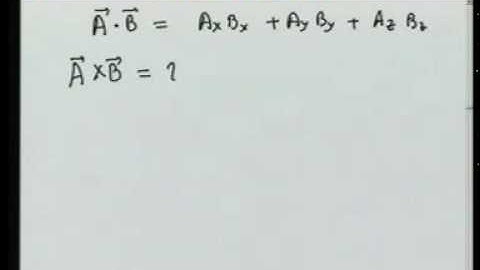 A⃗ · B⃗ = AxBx + AyBy + AzBz
A⃗ × B⃗ = ?